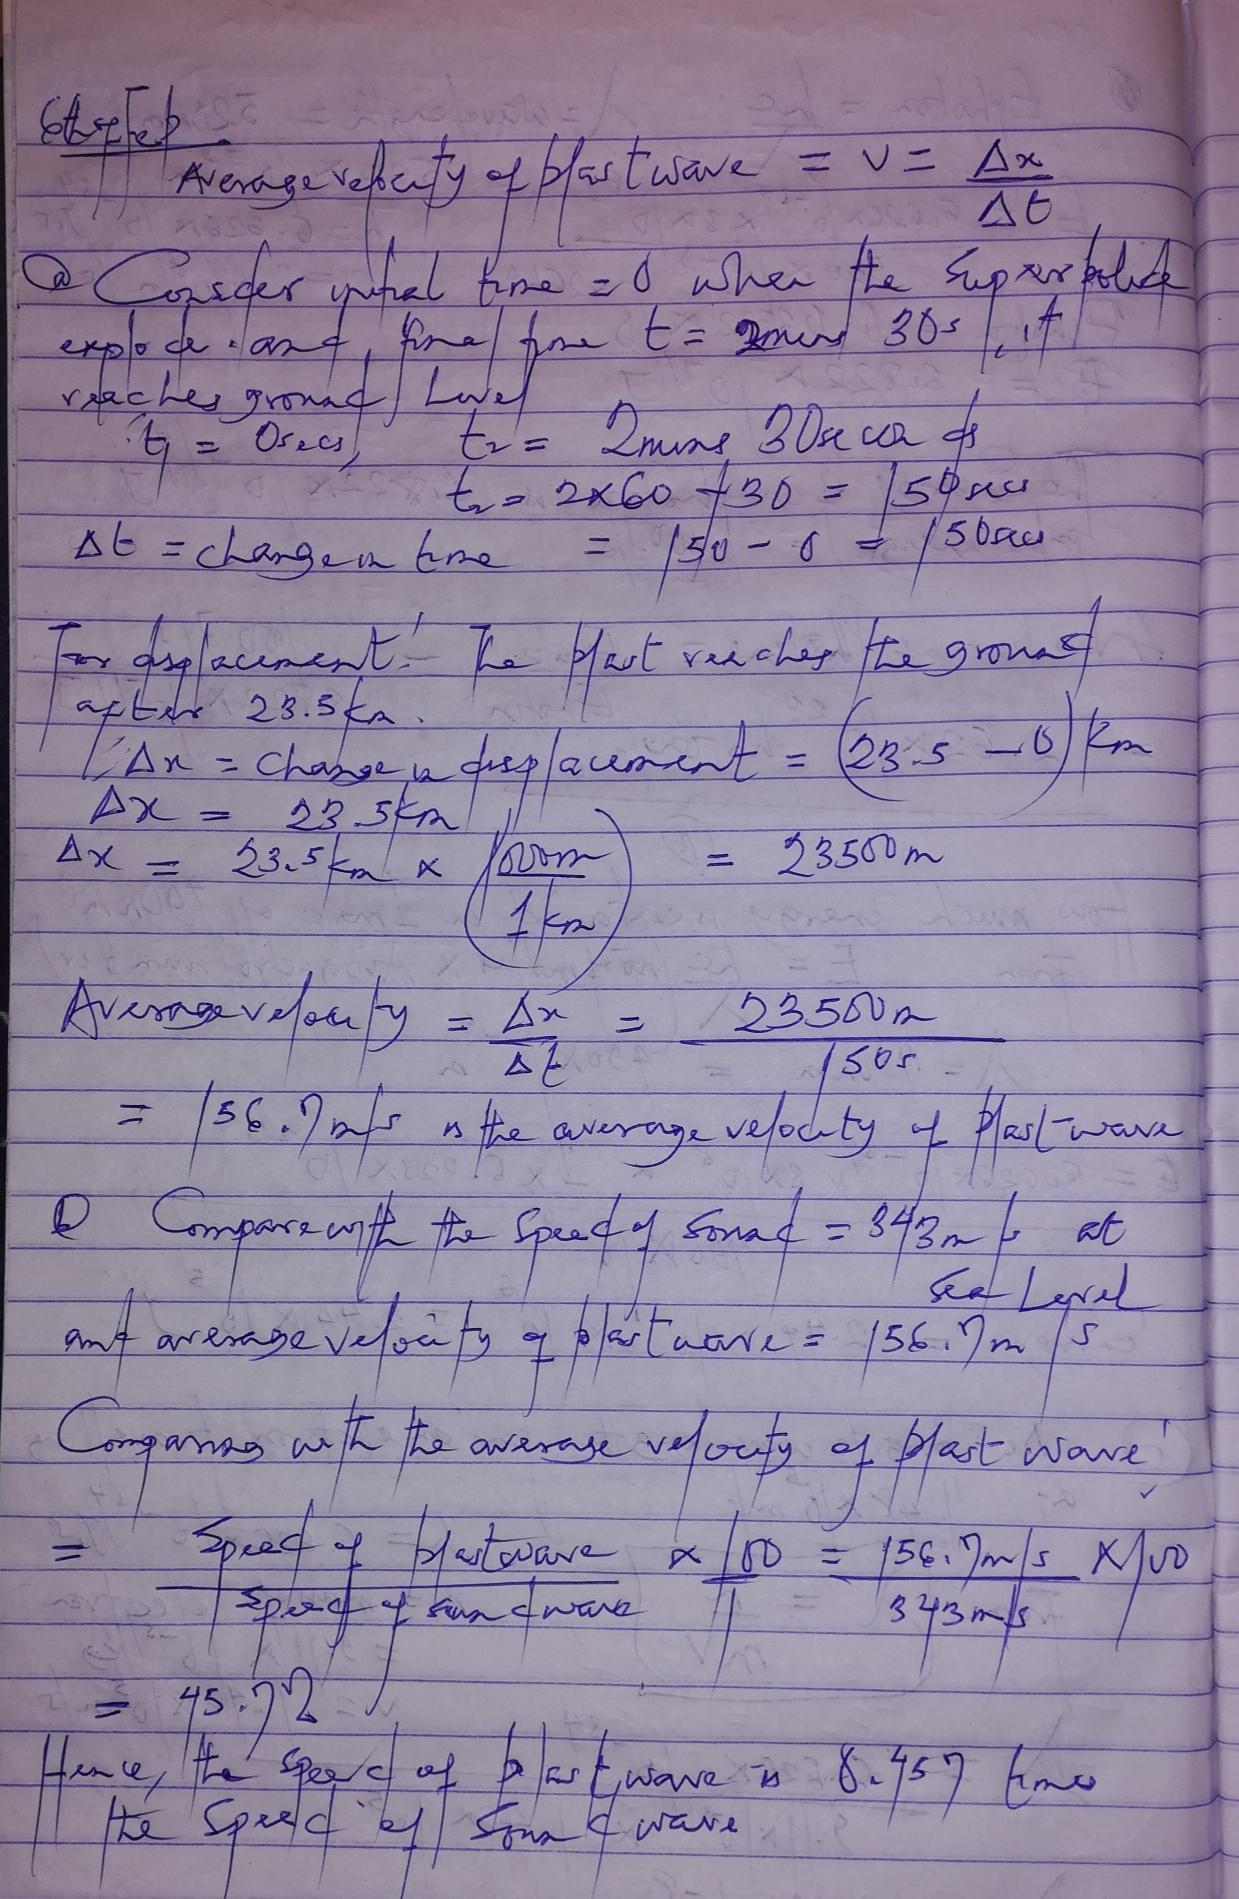 6th step
Average velocity of blast wave = V = Δx / Δt
(a) Consider initial time = 0 when the Superbolide
explode and, final time t = 2mins 30s, it
reaches ground Level
t₁ = 0secs, t₂ = 2mins 30seconds
t₂ = 2x60 + 30 = 150secs
Δt = change in time = 150 - 0 = 150secs
For displacement: The blast reaches the ground
after 23.5km.
Δx = change in displacement = (23.5 - 0) km
Δx = 23.5km
Δx = 23.5km x (1000m / 1km) = 23500m
Average velocity = Δx / Δt = 23500m / 150s
= 156.7m/s is the average velocity of blast wave
(b) Compare with the speed of sound = 343m/s at
Sea Level
and average velocity of blast wave = 156.7m/s
Comparing with the average velocity of blast wave
= Speed of blastwave / Speed of sound wave x 100 / 1 = 156.7m/s / 343m/s x 100
= 45.7%
Hence, the speed of blast wave is 0.457 times
the Speed of Sound wave